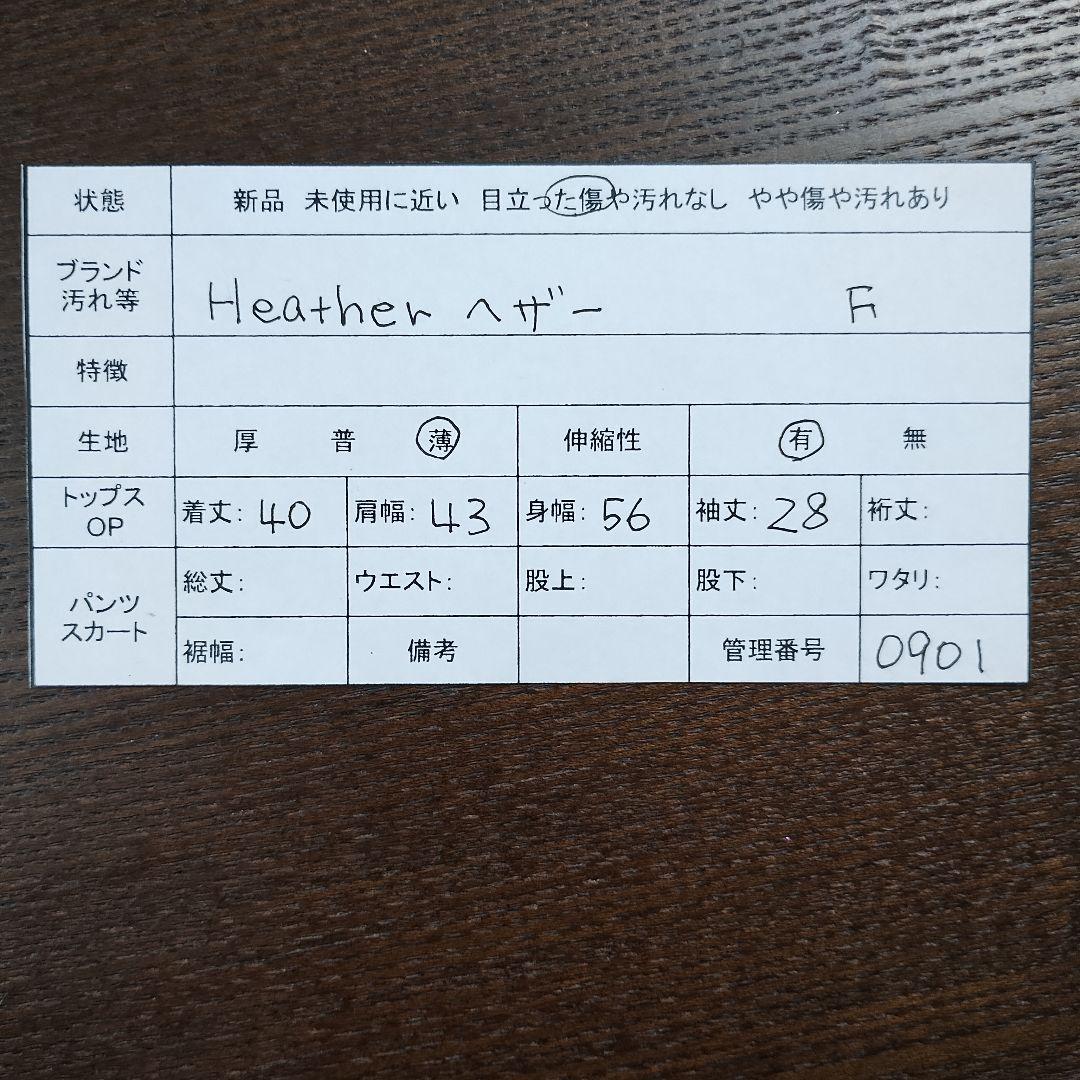 状態 新品 未使用に近い 目立った傷や汚れなし やや傷や汚れあり
ブランド
汚れ等
Heather ヘザー F
特徴
生地 厚 普 薄 伸縮性 有 無
トップス
OP
着丈: 40 肩幅: 43 身幅: 56 袖丈: 28 裄丈:
パンツ
スカート
総丈: ウエスト: 股上: 股下: ワタリ:
裾幅: 備考 管理番号 0901